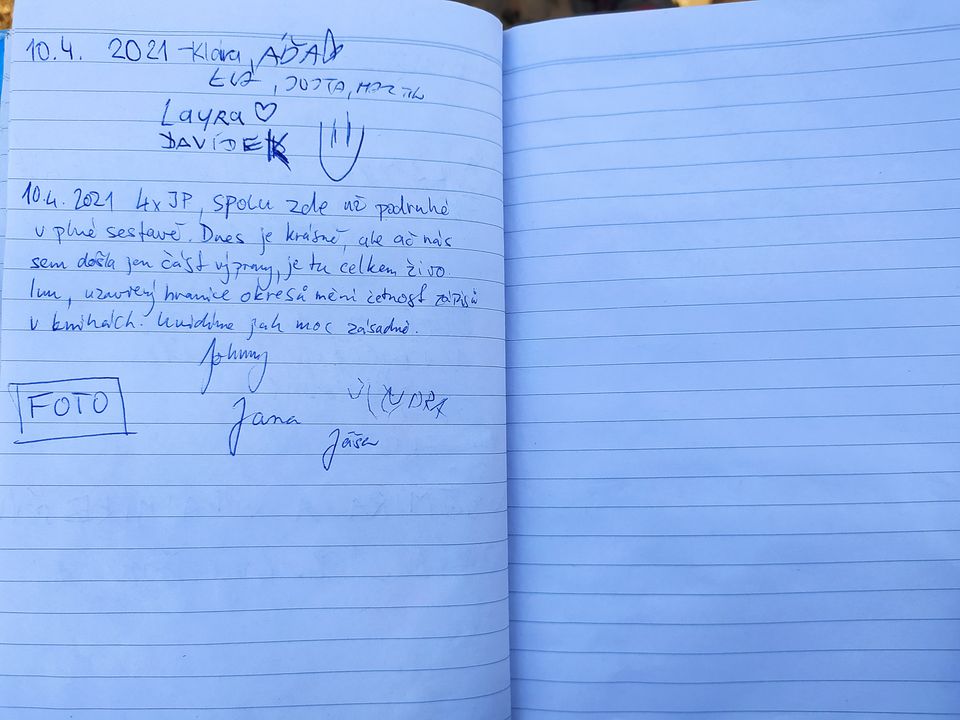 10.4. 2021 - Klára,
EVA, JOJTA, MARTIN
LayRa ♡
DAVÍDEK
10.4. 2021 4x JP, spolu zde už podruhé
v plné sestavě. Dnes je krásně, ale ač nás
sem došla jen část výpravy, je tu celkem živo.
uzavřený hranice okresů mění četnost zápisů
v knihách. Uvidíme jak moc zásadně.
Johnny
FOTO
Jana
Jáša